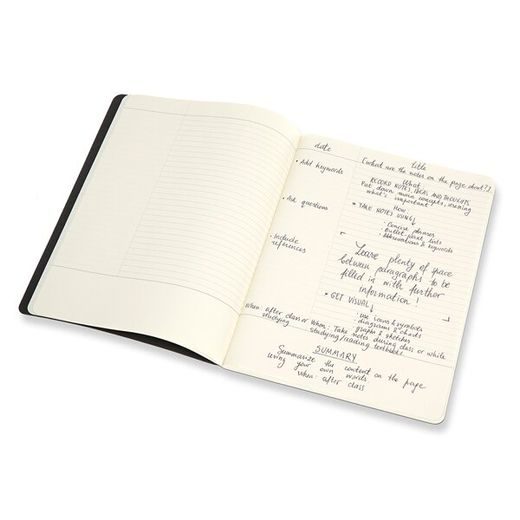 date
title
(what are the notes on the page about?)
• Add keywords
What
RECORD NOTES, IDEAS AND THOUGHTS
Put down main concepts, meaning
what's important
• Ask questions
How
• TAKE NOTES USING
• Concise phrases
• Bullet-point lists
• Abbreviations & keywords
• Include
references
Leave plenty of space
between paragraphs to be
filled in with further
information!
• GET VISUAL
• use icons & symbols
diagrams & charts
graphs & sketches
When: after class or
studying
When: Take notes during class or while
studying/reading textbooks
SUMMARY
Summarize the content on the page
using your own words
when: after class